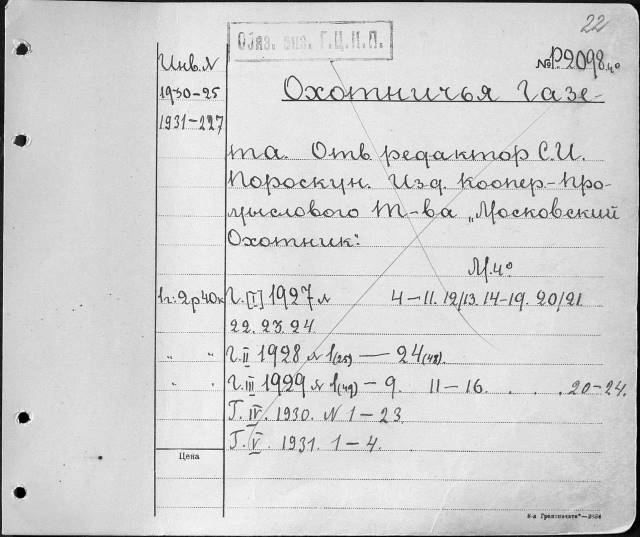 22
Обяз. экз. Г.Ц.К.П.
№ Р2098 4°
Инв. №
1930-25
1931-227
Охотничья Газе-
та. Отв редактор С.И.
Пороскун. Изд. Коопер-про-
мыслового Т-ва „Московский
Охотник:
М. 4°
1г: 2р40к Г. [I] 1927 № 4-11. 12/13. 14-19. 20/21
22. 23. 24
" " Г. II 1928 № 1(25) — 24(48).
" " Г. III 1929 № 1(49) - 9. 11-16. . . . 20-24.
Г. IV. 1930. N 1-23.
Г. V. 1931. 1-4.
Цена